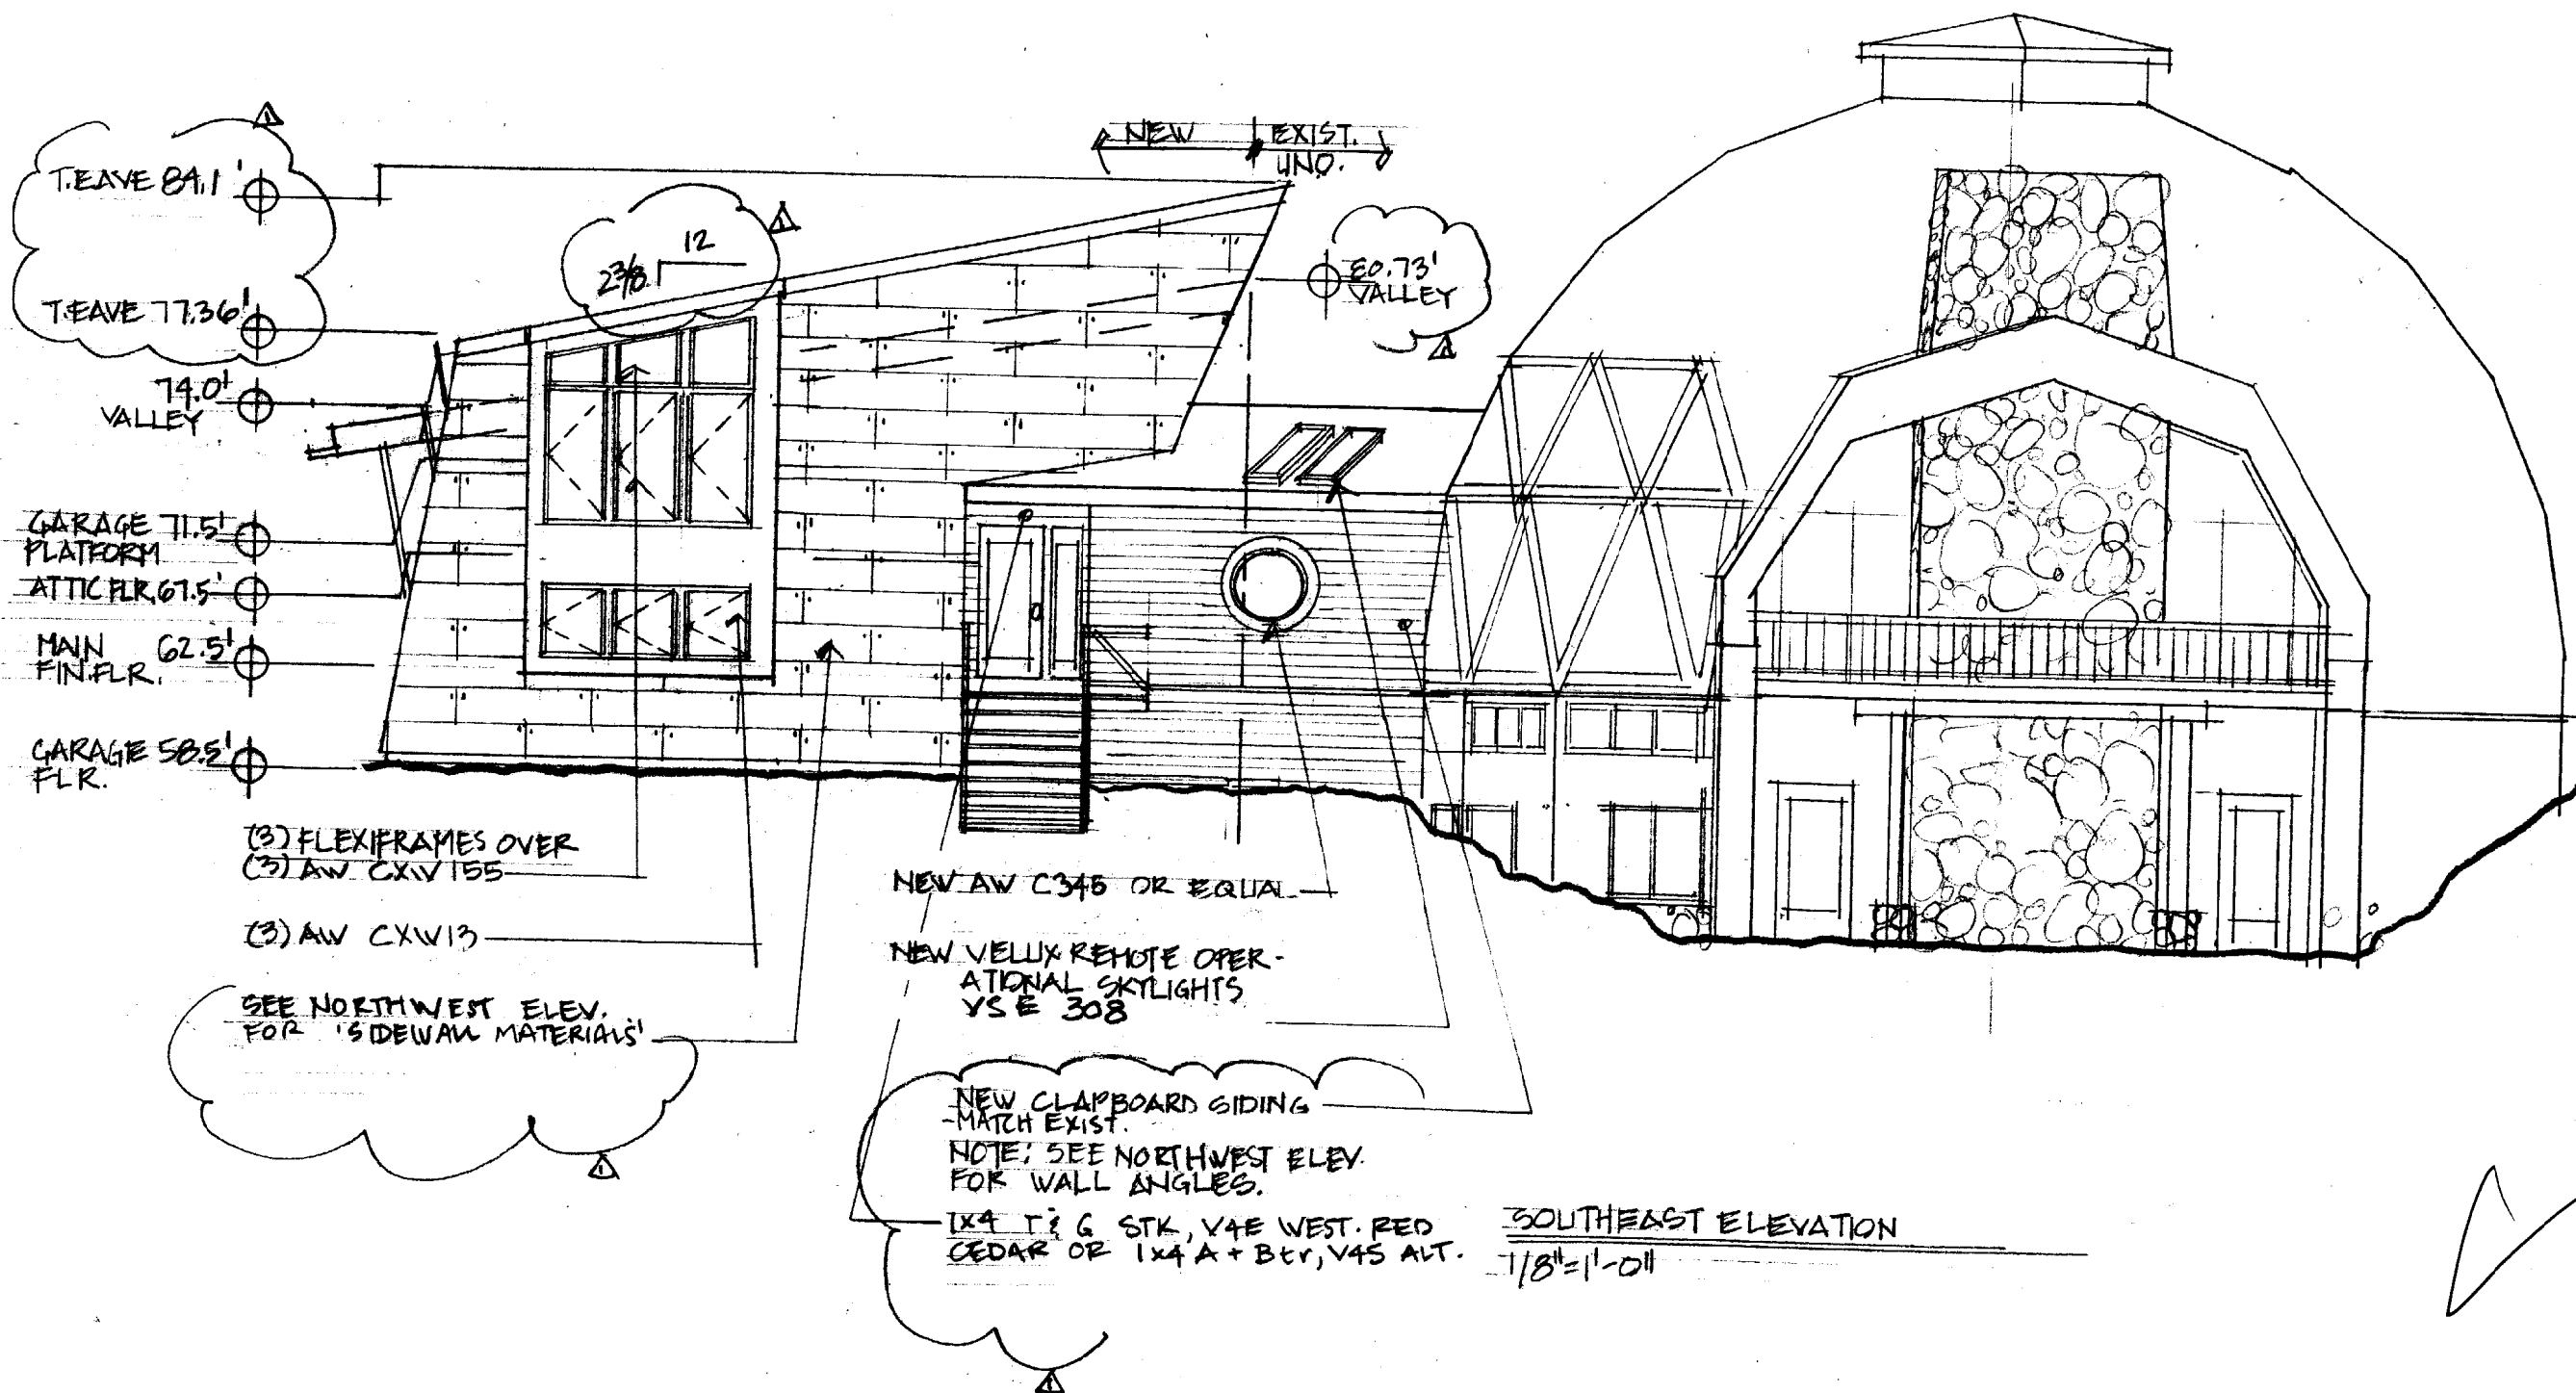 T.EAVE 84.1'
T.EAVE 77.36'
74.0'
VALLEY
GARAGE 71.5'
PLATFORM
ATTIC FLR. 67.5'
MAIN 62.5'
FIN.FLR.
GARAGE 58.5'
FLR.
12
2 3/8
NEW
EXIST.
UNO.
80.73'
VALLEY
(3) FLEXIFRAMES OVER
(3) AW CXW155
(3) AW CXW13
SEE NORTHWEST ELEV.
FOR 'SIDEWALL MATERIALS'
NEW AW C345 OR EQUAL
NEW VELUX REMOTE OPER-
ATIONAL SKYLIGHTS
VSE 308
NEW CLAPBOARD SIDING
-MATCH EXIST.
NOTE: SEE NORTHWEST ELEV.
FOR WALL ANGLES.
1x4 T & G STK, V4E WEST. RED
CEDAR OR 1x4 A + Btr, V4S ALT.
SOUTHEAST ELEVATION
1/8"=1'-0"
1
1
1
1
1